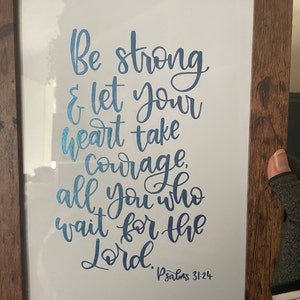 Be strong
& let your
heart take
courage,
all you who
wait for the
Lord.
Psalms 31:24